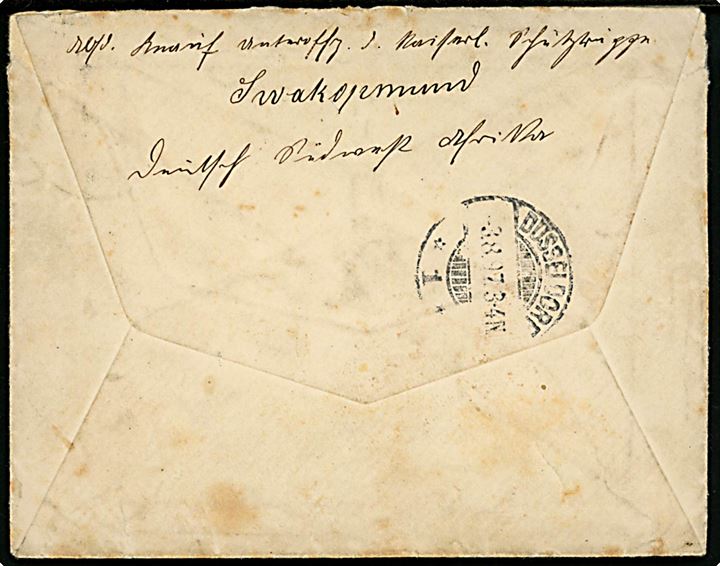 Abs. Knauf Unteroffz. d. Kaiserl. Schutztruppe
Swakopmund
Deutsch Südwest Afrika
DÜSSELDORF
-3.8.97.3-4N
* 1 *